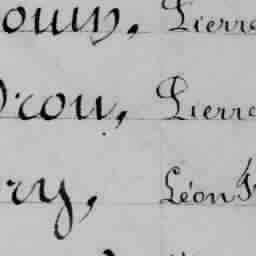 ouin, Pierre
Drou, Pierre
ry, Léon Fr